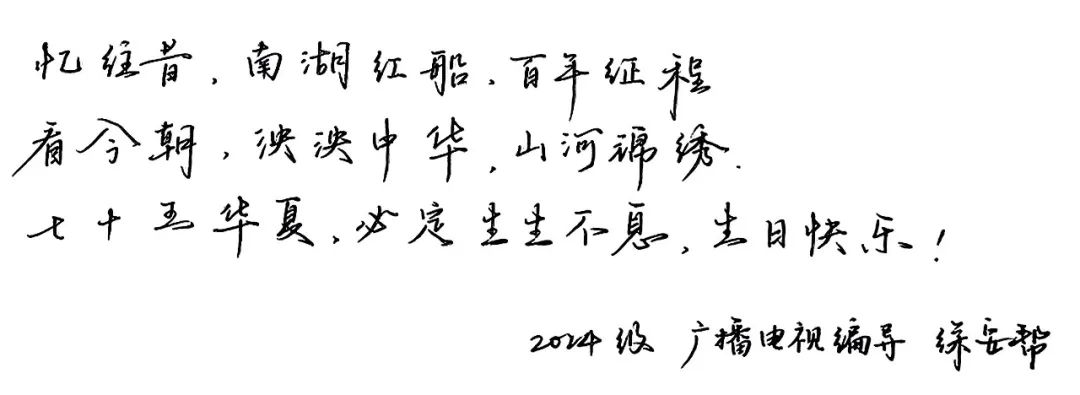 忆往昔，南湖红船，百年征程
看今朝，泱泱中华，山河锦绣.
七十五华夏，必定生生不息，生日快乐！
2024级 广播电视编导 徐安帮